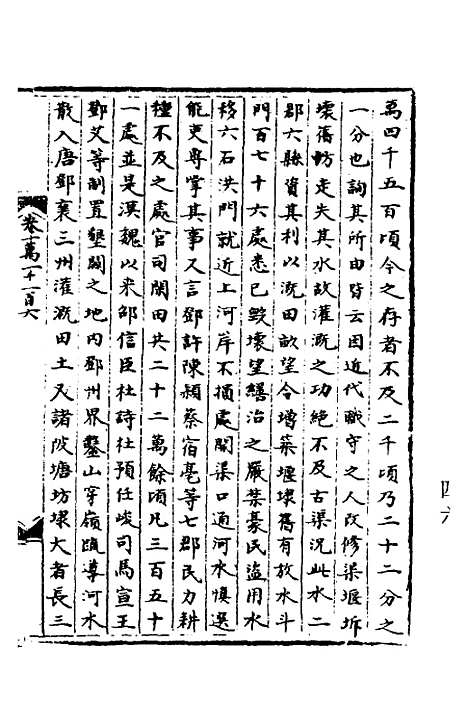 萬四千五百頃今之存者不及二千頃乃二十二分之
一分也詢其所由皆云因近代職守之人改修渠堰坼
壞舊防走失其水故灌溉之功絕不及古渠況此水二
郡六縣資其利以溉田畝望令增築堰埭舊有放水斗
門百七十六處悉已毀壞望繕治之嚴禁豪民盜用水
移六石洪門就近上河岸不損處開渠口通河水慎選
能吏專掌其事又言鄧許陳潁蔡宿亳等七郡民力耕
種不及之處官司閑田共二十二萬餘頃凡三百五十
一處並是漢魏以來邵信臣杜詩杜預任峻司馬宣王
鄧艾等制置墾闢之地內鄧州界鑿山穿嶺疏導河水
散入唐鄧襄三州灌溉田土又諸陂塘坊埭大者長三
卷一萬一千一百六
四六